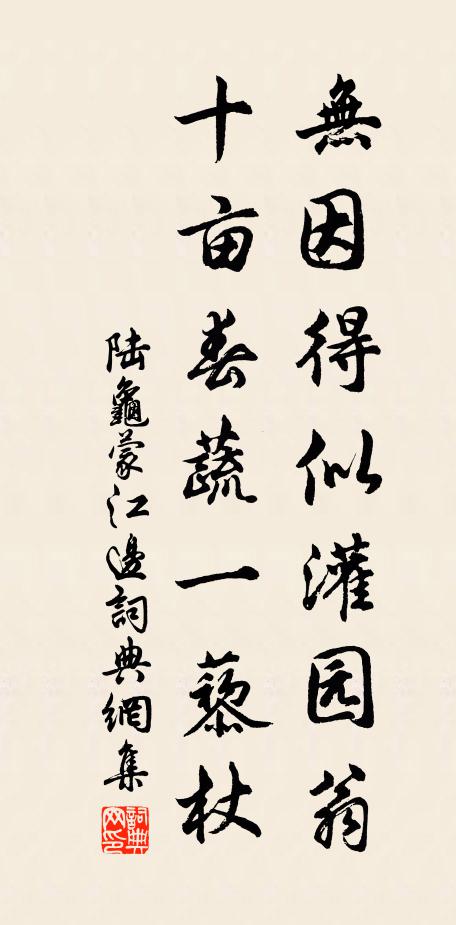 無因得似灌园翁
十亩春蔬一藜杖
陆龜蒙江邊詞典網集
詞典
网印